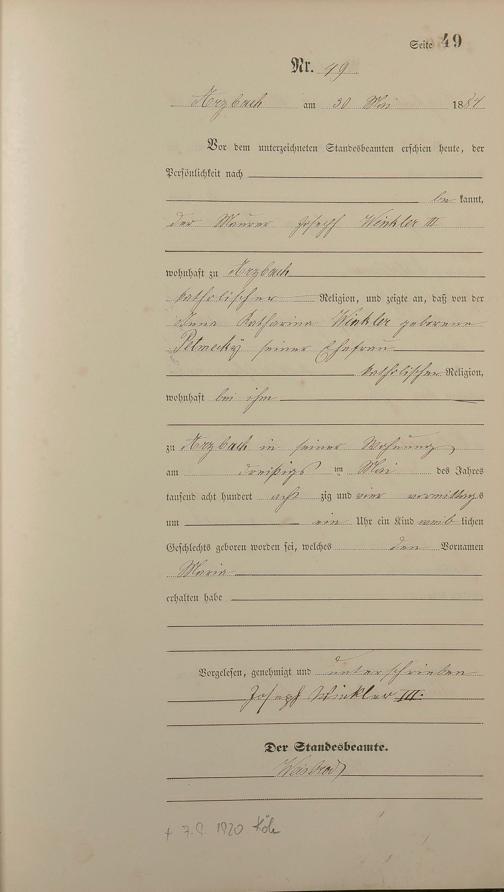 Seite 49
Nr. 49
Arzbach am 30 Mai 1884
Vor dem unterzeichneten Standesbeamten erschien heute, der
Persönlichkeit nach
be kannt,
der Maurer Joseph Winkler III
wohnhaft zu Arzbach
katholischer Religion, und zeigte an, daß von der
Anna Katharina Winkler geborene
seiner Ehefrau
katholischer Religion,
wohnhaft bei ihm
zu Arzbach in seiner Wohnung
am dreißigs ten Mai des Jahres
tausend acht hundert acht zig und vier vormittags
um ein Uhr ein Kind weib lichen
Geschlechts geboren worden sei, welches den Vornamen
Maria
erhalten habe
Vorgelesen, genehmigt und unterschrieben
Joseph Winkler III.
Der Standesbeamte.
Weisbrod
1920 Köln